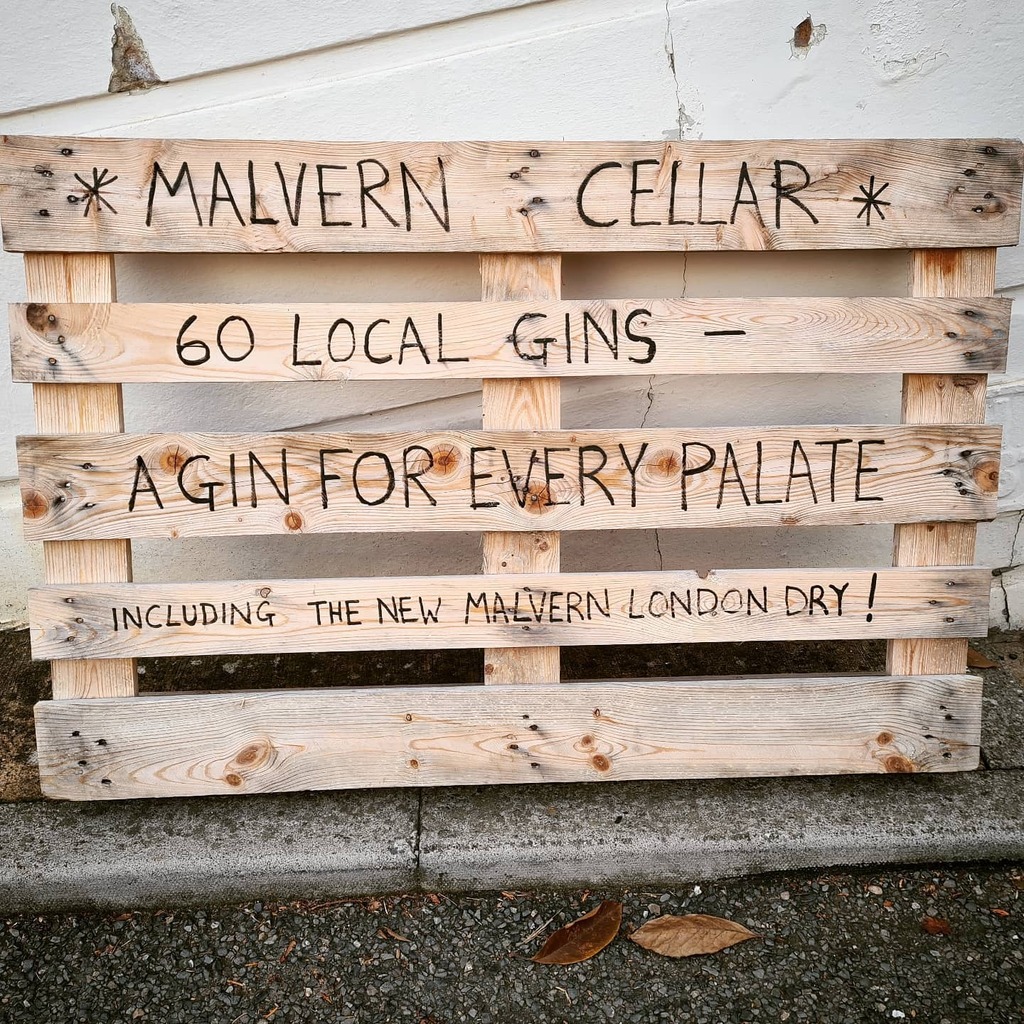 * MALVERN CELLAR *
60 LOCAL GINS –
A GIN FOR EVERY PALATE
INCLUDING THE NEW MALVERN LONDON DRY!